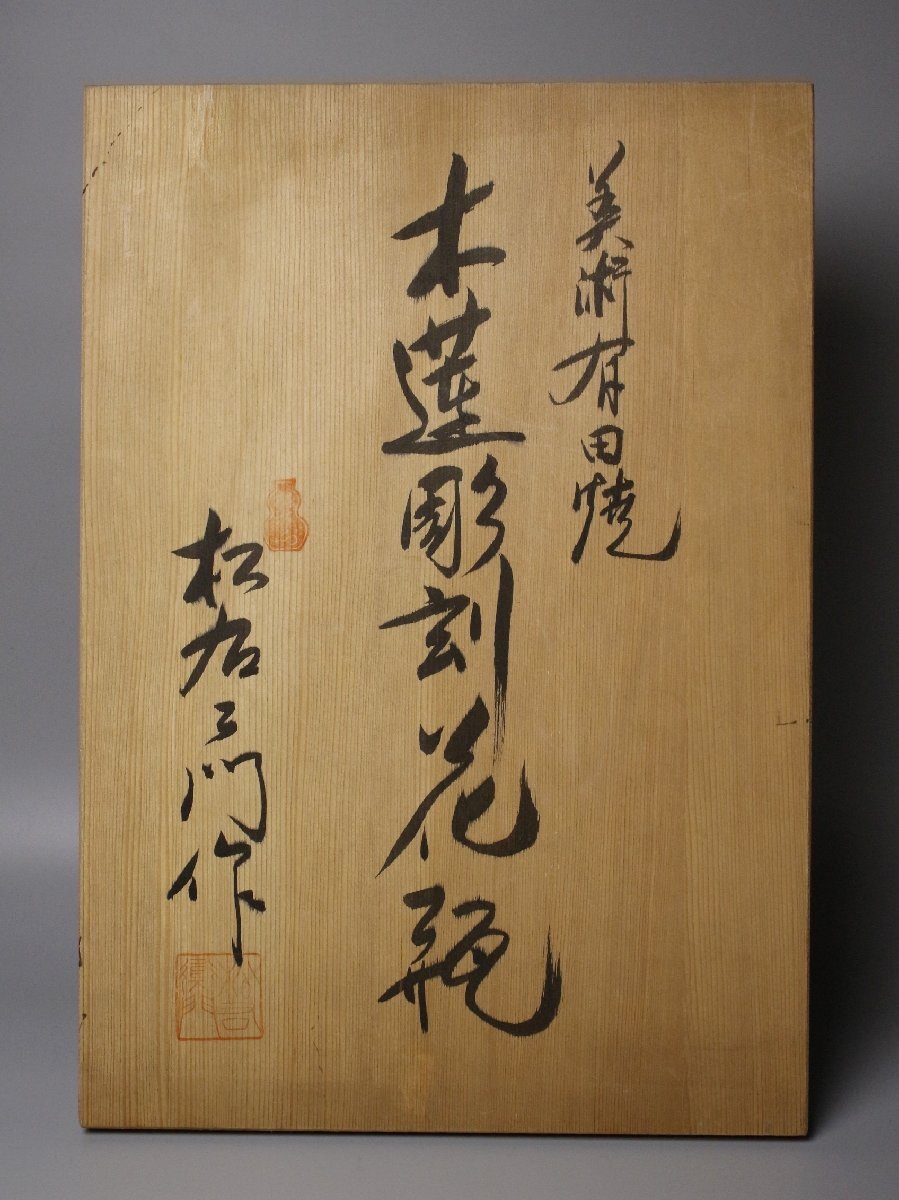 美術有田焼
木蓮彫刻花瓶
松右ヱ門作